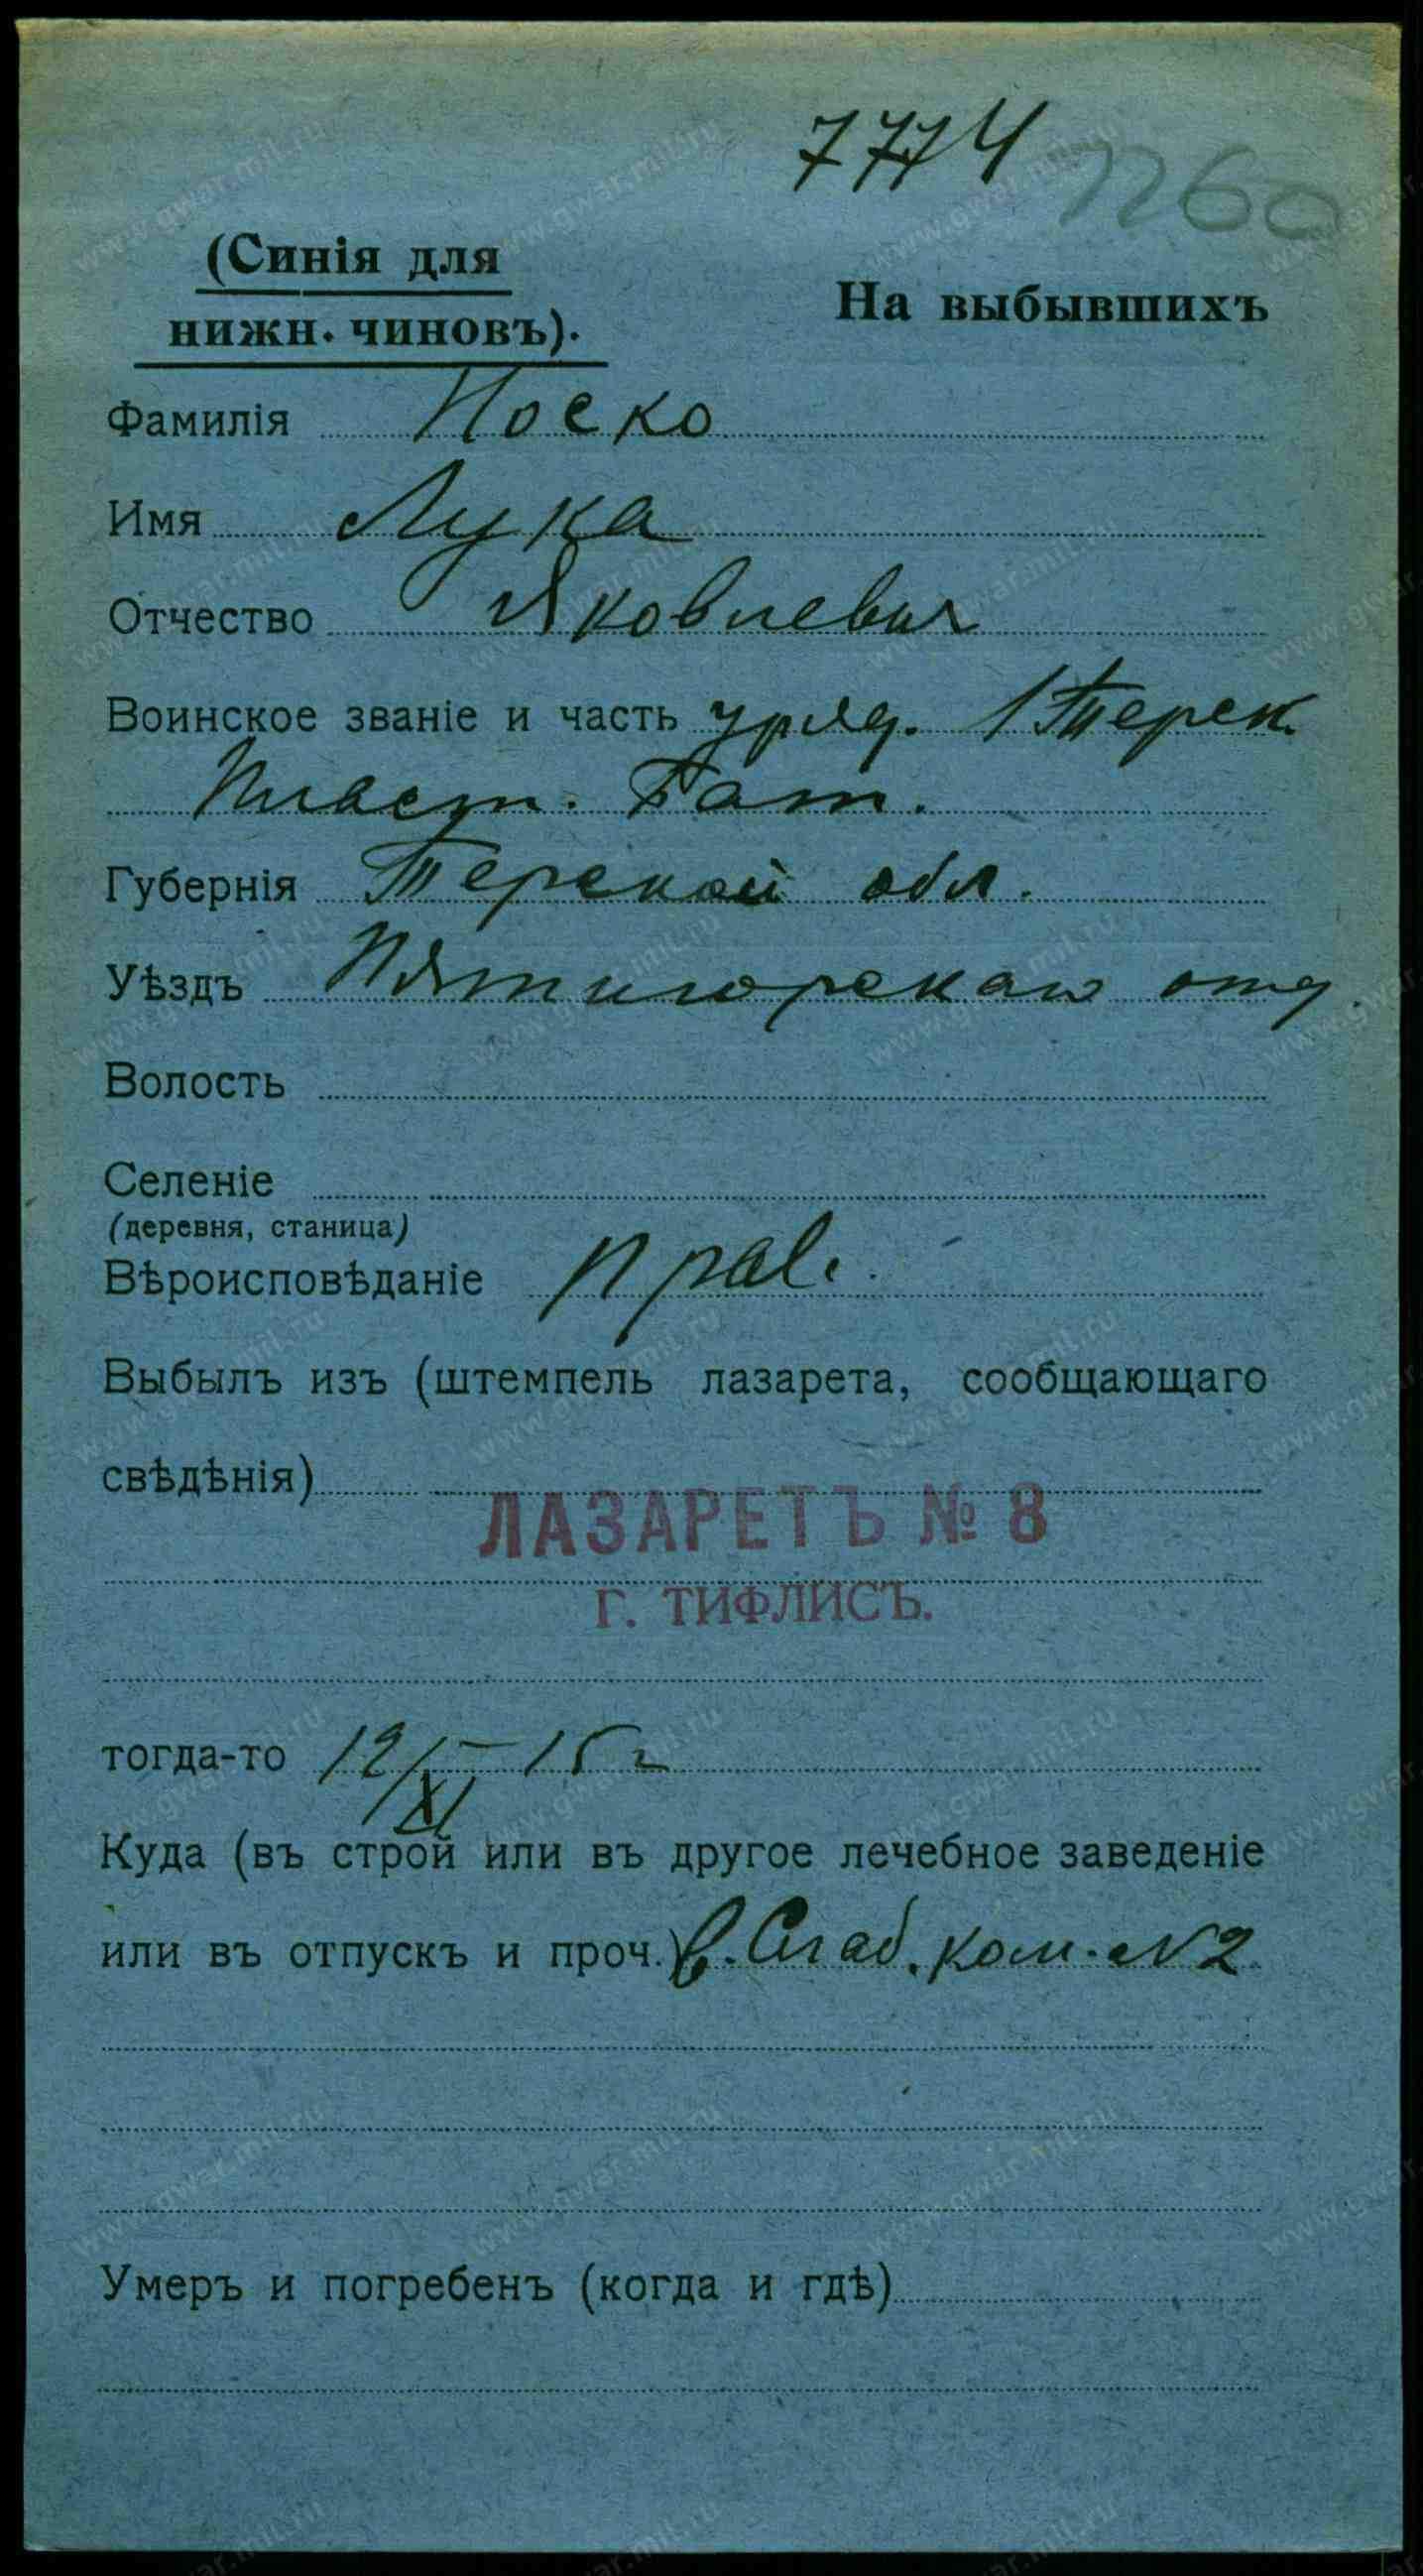 7774 1260
(Синія для
нижн. чиновъ).
На выбывшихъ
Фамилія Носко
Имя Лука
Отчество Яковлевич
Воинское званіе и часть уряд. 1 Терск.
Пласт. Бат.
Губернія Терской обл.
Уѣздъ Пятигорскаго отд.
Волость
Селеніе
(деревня, станица)
Вѣроисповѣданіе прав.
Выбылъ изъ (штемпель лазарета, сообщающаго
свѣдѣнія)
ЛАЗАРЕТЪ № 8
Г. ТИФЛИСЪ.
тогда-то 12/XI 15 г
Куда (въ строй или въ другое лечебное заведеніе
или въ отпускъ и проч.) в. Слаб. ком. N 2
Умеръ и погребенъ (когда и гдѣ)